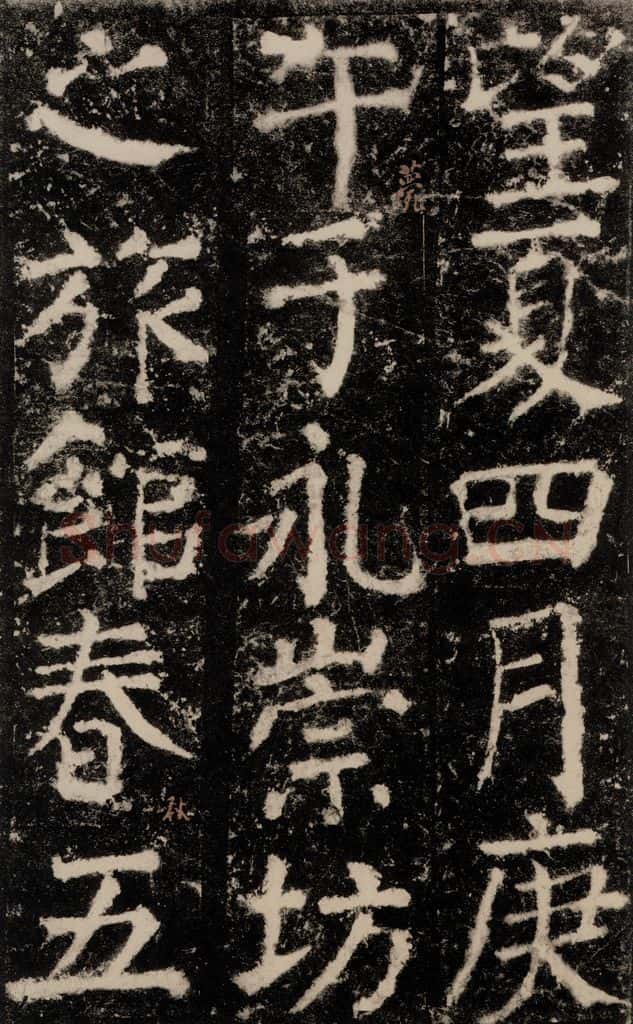 望夏四月庚
午于礼崇坊
之旅館春五
秋
Shufawang.CN